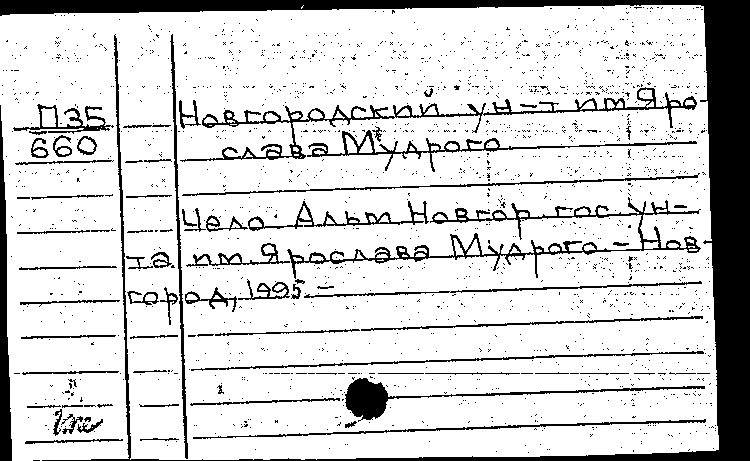 П35
660
Новгородский ун-т им Яро-
слава Мудрого
Чело: Альм Новгор гос ун-
та им. Ярослава Мудрого – Нов-
город, 1995. –